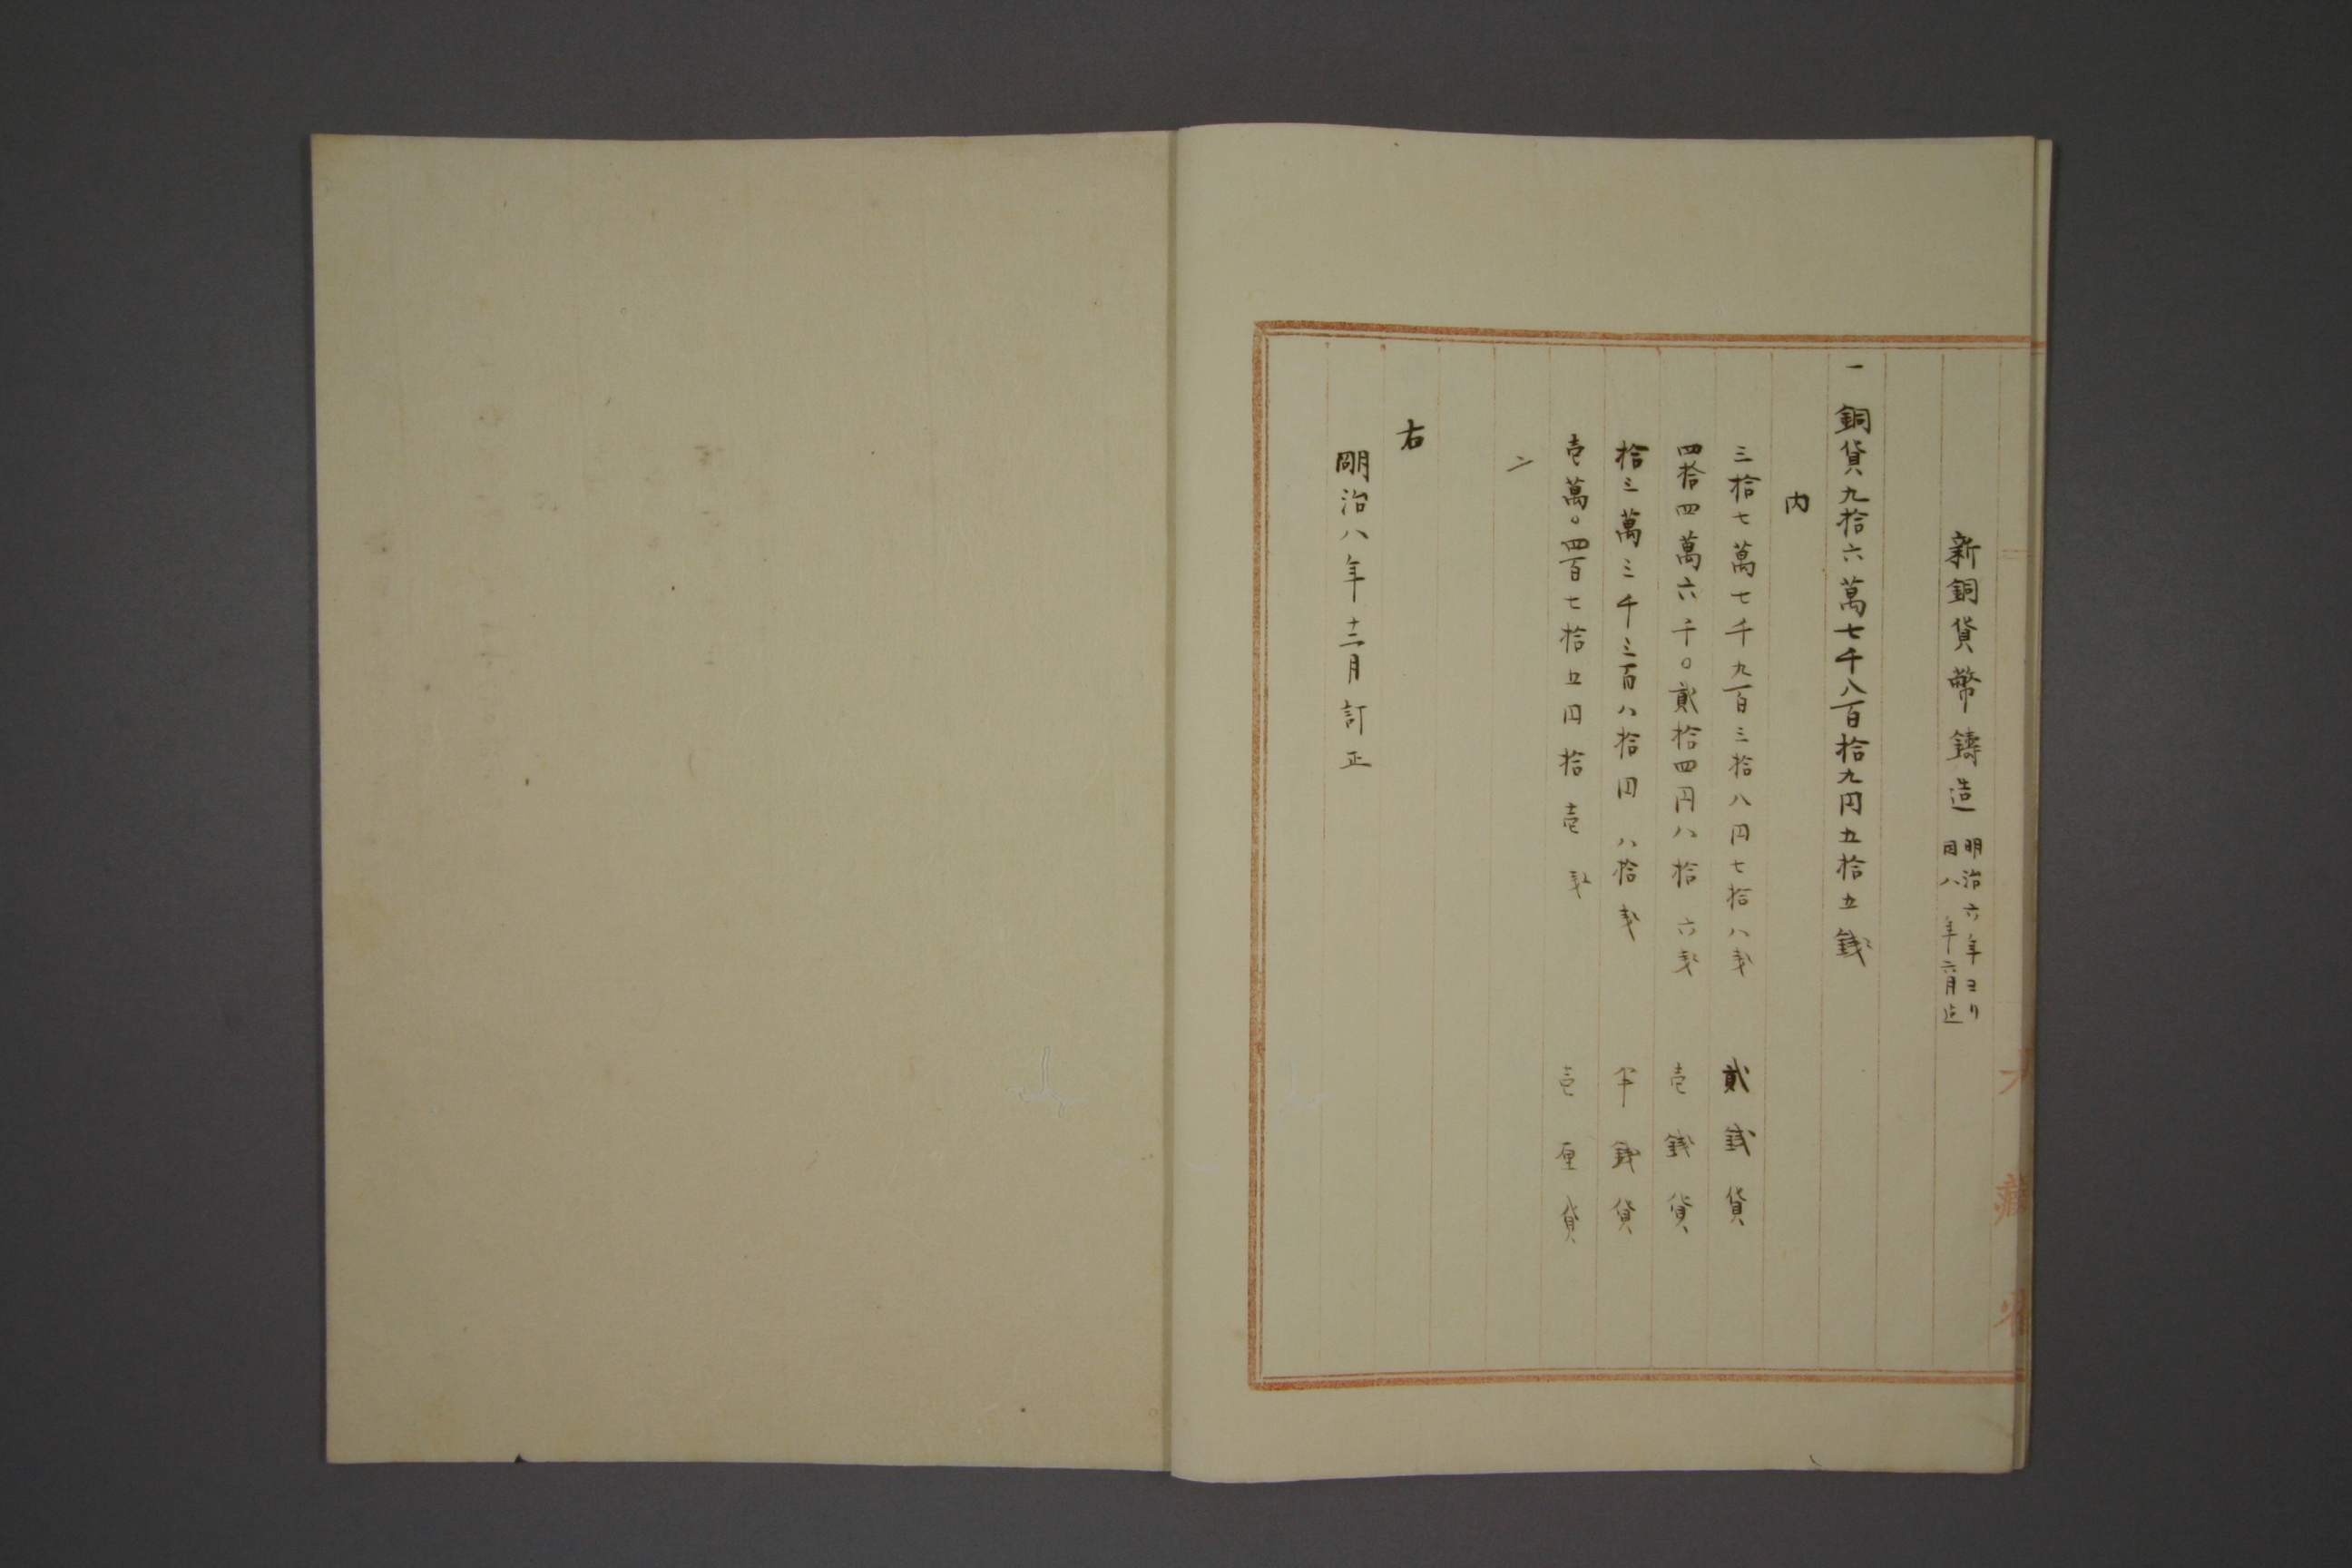 新銅貨幣鋳造 明治六年ヨリ
同八年六月迄
一 銅貨九拾六萬七千八百拾九円五拾五銭
内
三拾七萬七千九百三拾八円七拾八銭 貳銭貨
四拾四萬六千〇貳拾四円八拾六銭 壱銭貨
拾三萬三千三百八拾円八拾銭 半銭貨
壱萬〇四百七拾五円拾壱銭 壱厘貨
〆
右
明治八年十二月訂正